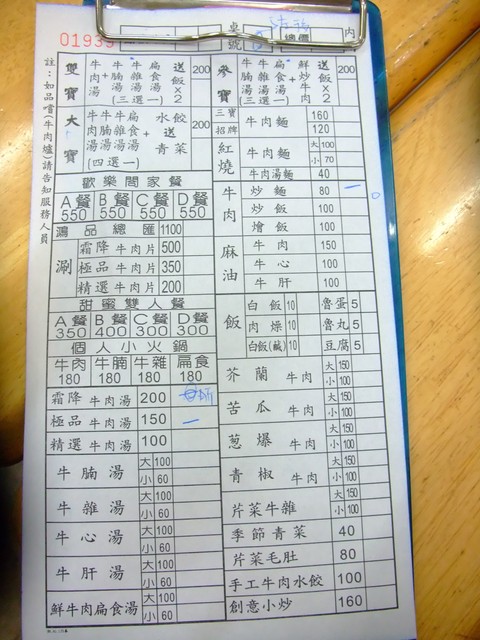 桌號
總價
內
註：如品嚐(牛肉爐)請告知服務人員
雙寶
牛肉湯 + 牛腩湯 牛雜湯 扁食湯 (三選一) 送飯×2 200
大寶
牛肉湯 牛腩湯 牛雜湯 扁食湯 (四選一) + 水餃 送 青菜 200
歡樂闔家餐
A餐 550 B餐 550 C餐 550 D餐 550
鴻品總匯 1100
涮
霜降牛肉片 500
極品牛肉片 350
精選牛肉片 200
甜蜜雙人餐
A餐 350 B餐 400 C餐 300 D餐 300
個人小火鍋
牛肉 180 牛腩 180 牛雜 180 扁食 180
霜降牛肉湯 200
極品牛肉湯 150
精選牛肉湯 100
牛腩湯 大 100 小 60
牛雜湯 大 100 小 60
牛心湯 大 100 小 60
牛肝湯 大 100 小 60
鮮牛肉扁食湯 大 100 小 60
參寶
(三選一) 鮮炒牛肉 送飯×2 200
三寶 招牌 牛肉麵 160 120
紅燒 牛肉麵 大 100 小 70
牛肉湯麵 40
牛肉
炒麵 80
炒飯 80
燴飯 80
麻油
牛肉 150
牛心 100
牛肝 100
飯
白飯 10 魯蛋 5
肉燥 10 魯丸 5
白飯(鹹) 10 豆腐 5
芥蘭牛肉 大 150 小 100
苦瓜牛肉 大 150 小 100
蔥爆牛肉 大 150 小 100
青椒牛肉 大 150 小 100
芹菜牛雜 大 150 小 100
季節青菜 40
芹菜毛肚 80
手工牛肉水餃 100
創意小炒 160